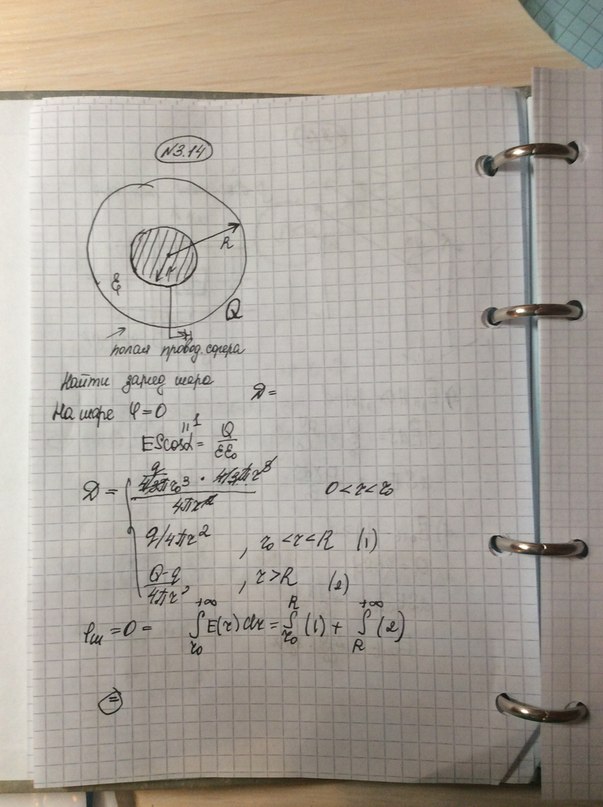 N3.14
R
r
ε
Q
полая провод. сфера
Найти заряд шара
D =
На шаре φ=0
"1
EScosα = Q/εε₀
D = { q/(4/3πr₀³) · 4/3πr³ / 4πr² 0<r<r₀
q/4πr² , r₀<r<R (1)
Q-q/4πr² , r>R (2)
φш=0= ∫r₀+∞ E(r)dr = ∫r₀R (1) + ∫R+∞ (2)
=